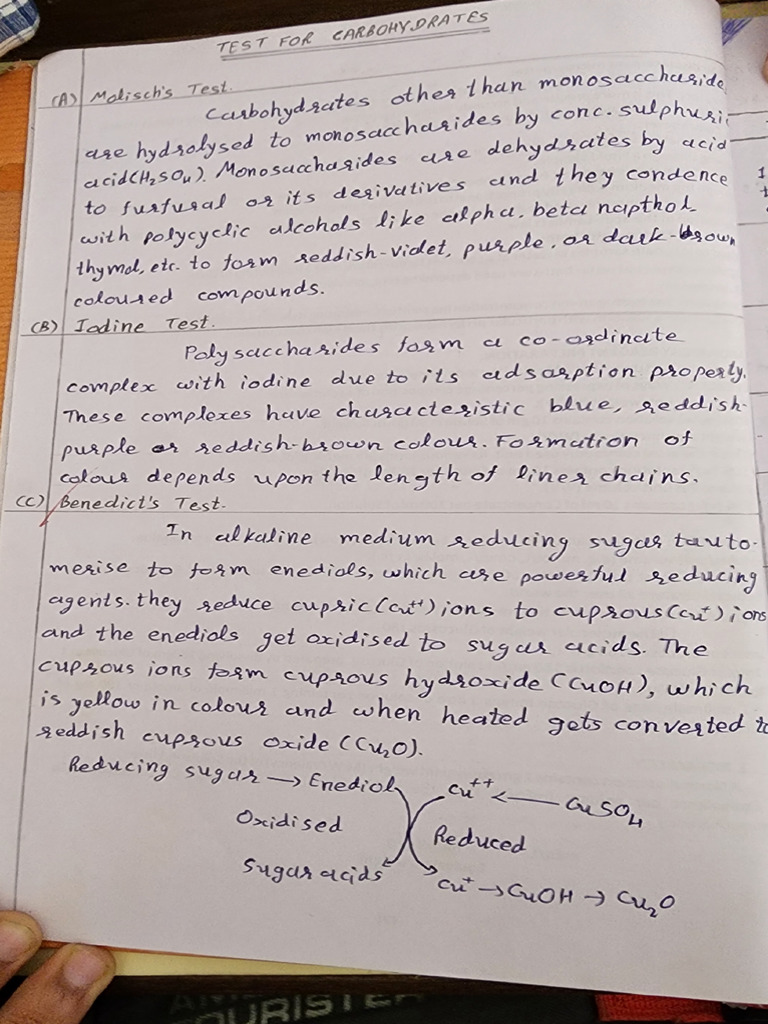 TEST FOR CARBOHYDRATES
(A) Molisch's Test.
Carbohydrates other than monosaccharide
are hydrolysed to monosaccharides by conc. sulphuri
acid (H₂SO₄). Monosaccharides are dehydrates by acid
to furfural or its derivatives and they condence
with polycyclic alcohols like alpha, beta napthol
thymol, etc. to form reddish-violet, purple, or dark-brown
coloured compounds.
(B) Iodine Test.
Polysaccharides form a co-ordinate
complex with iodine due to its adsorption property.
These complexes have characteristic blue, reddish-
purple or reddish-brown colour. Formation of
colour depends upon the length of liner chains.
(C) Benedict's Test.
In alkaline medium reducing sugar tauto-
merise to form enediols, which are powerful reducing
agents. they reduce cupric (cu⁺⁺) ions to cuprous (cu⁺) ions
and the enediols get oxidised to sugar acids. The
cuprous ions form cuprous hydroxide (CuOH), which
is yellow in colour and when heated gets converted to
reddish cuprous oxide (Cu₂O).
Reducing sugar → Enediol Cu⁺⁺ ← CuSO₄
Oxidised Reduced
Sugar acids Cu⁺ → CuOH → Cu₂O
OURISTER